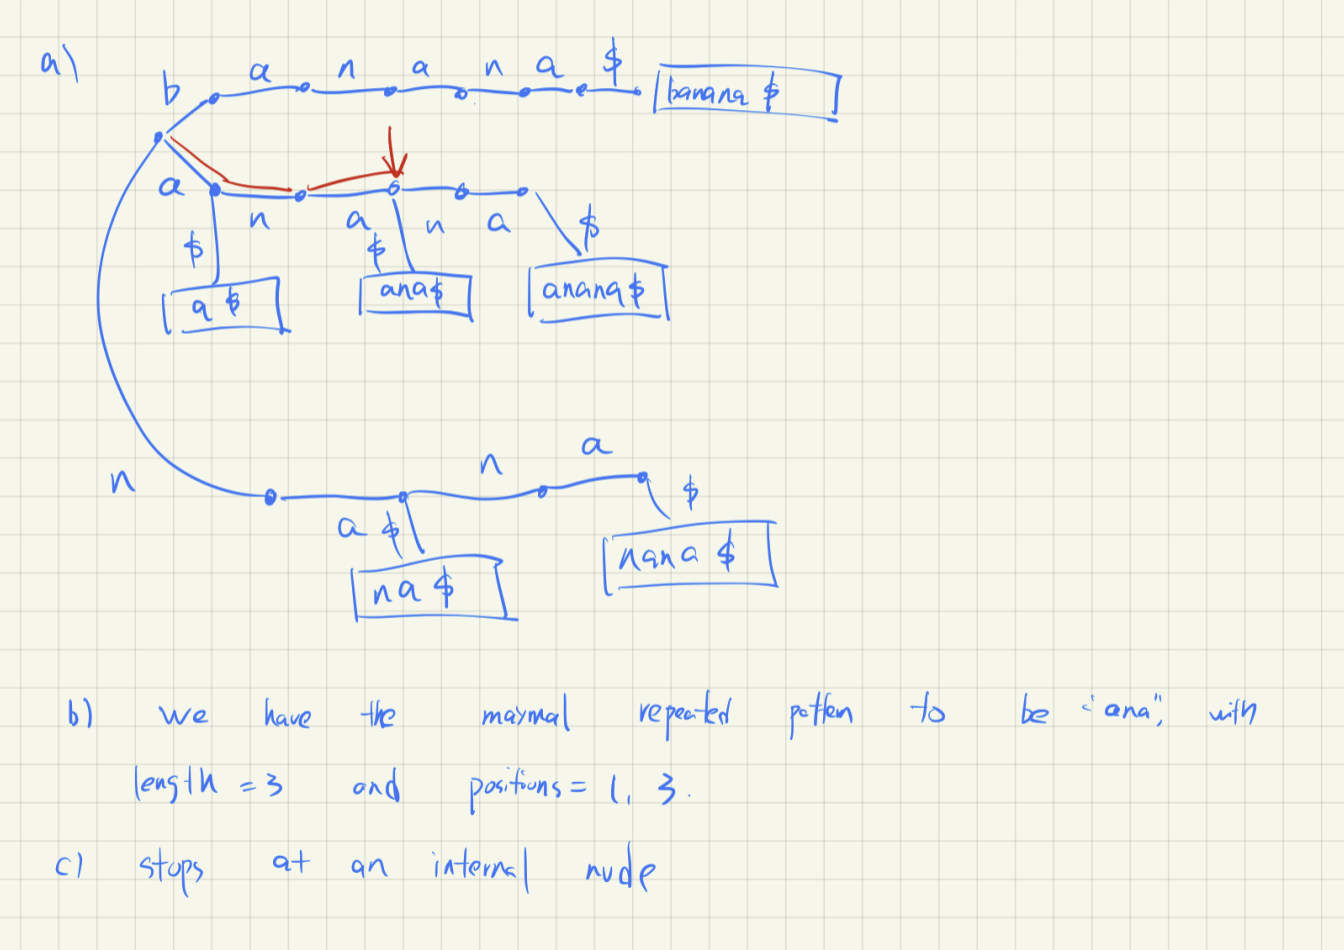 a)
b a n a n a $ banana $
a n a n a $
$ $
a $ ana$ anana$
n a $ n a $
na $ nana $
b) we have the maximal repeated pattern to be "ana", with
length = 3 and positions = 1, 3.
c) stops at an internal node